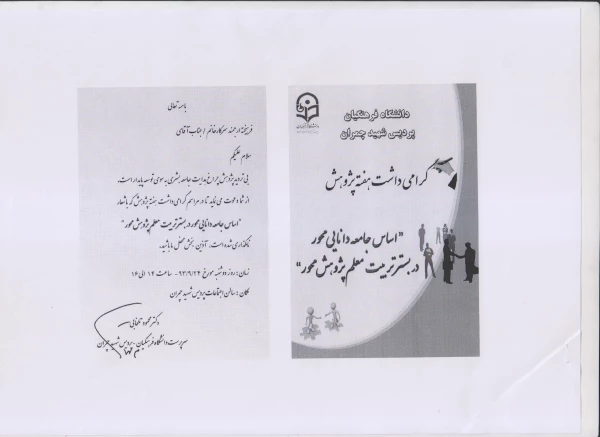 دانشگاه فرهنگیان
پردیس شهید چمران
گرامی داشت هفته پژوهش
"اساس جامعه دانایی محور
در بستر تربیت معلم پژوهش محور"
باسمه تعالی
فرهیخته ارجمند سرکار خانم / جناب آقای
سلام علیکم
بی تردید پژوهش چراغ هدایت جامعه بشری به سوی توسعه پایدار است.
از شما دعوت می نماید تا در مراسم گرامی داشت هفته پژوهش که با شعار
"اساس جامعه دانایی محور در بستر تربیت معلم پژوهش محور"
نامگذاری شده است، آذین بخش محفل ما باشید.
زمان: روز دوشنبه مورخ ۹۳/۹/۲۴ - ساعت ۱۴ الی ۱۶
مکان: سالن اجتماعات پردیس شهید چمران
دکتر محمود تلخابی
سرپرست دانشگاه فرهنگیان - پردیس شهید چمران